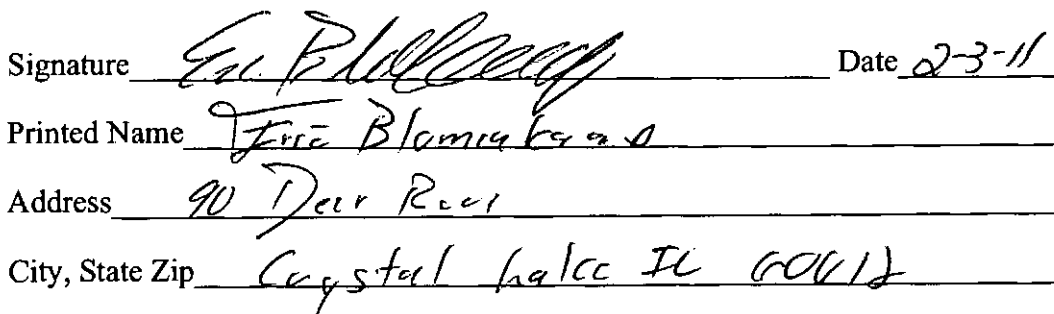 Signature Date 2-3-11
Printed Name Eric
Address 90 Deer
City, State Zip Crystal Lake IL 60012